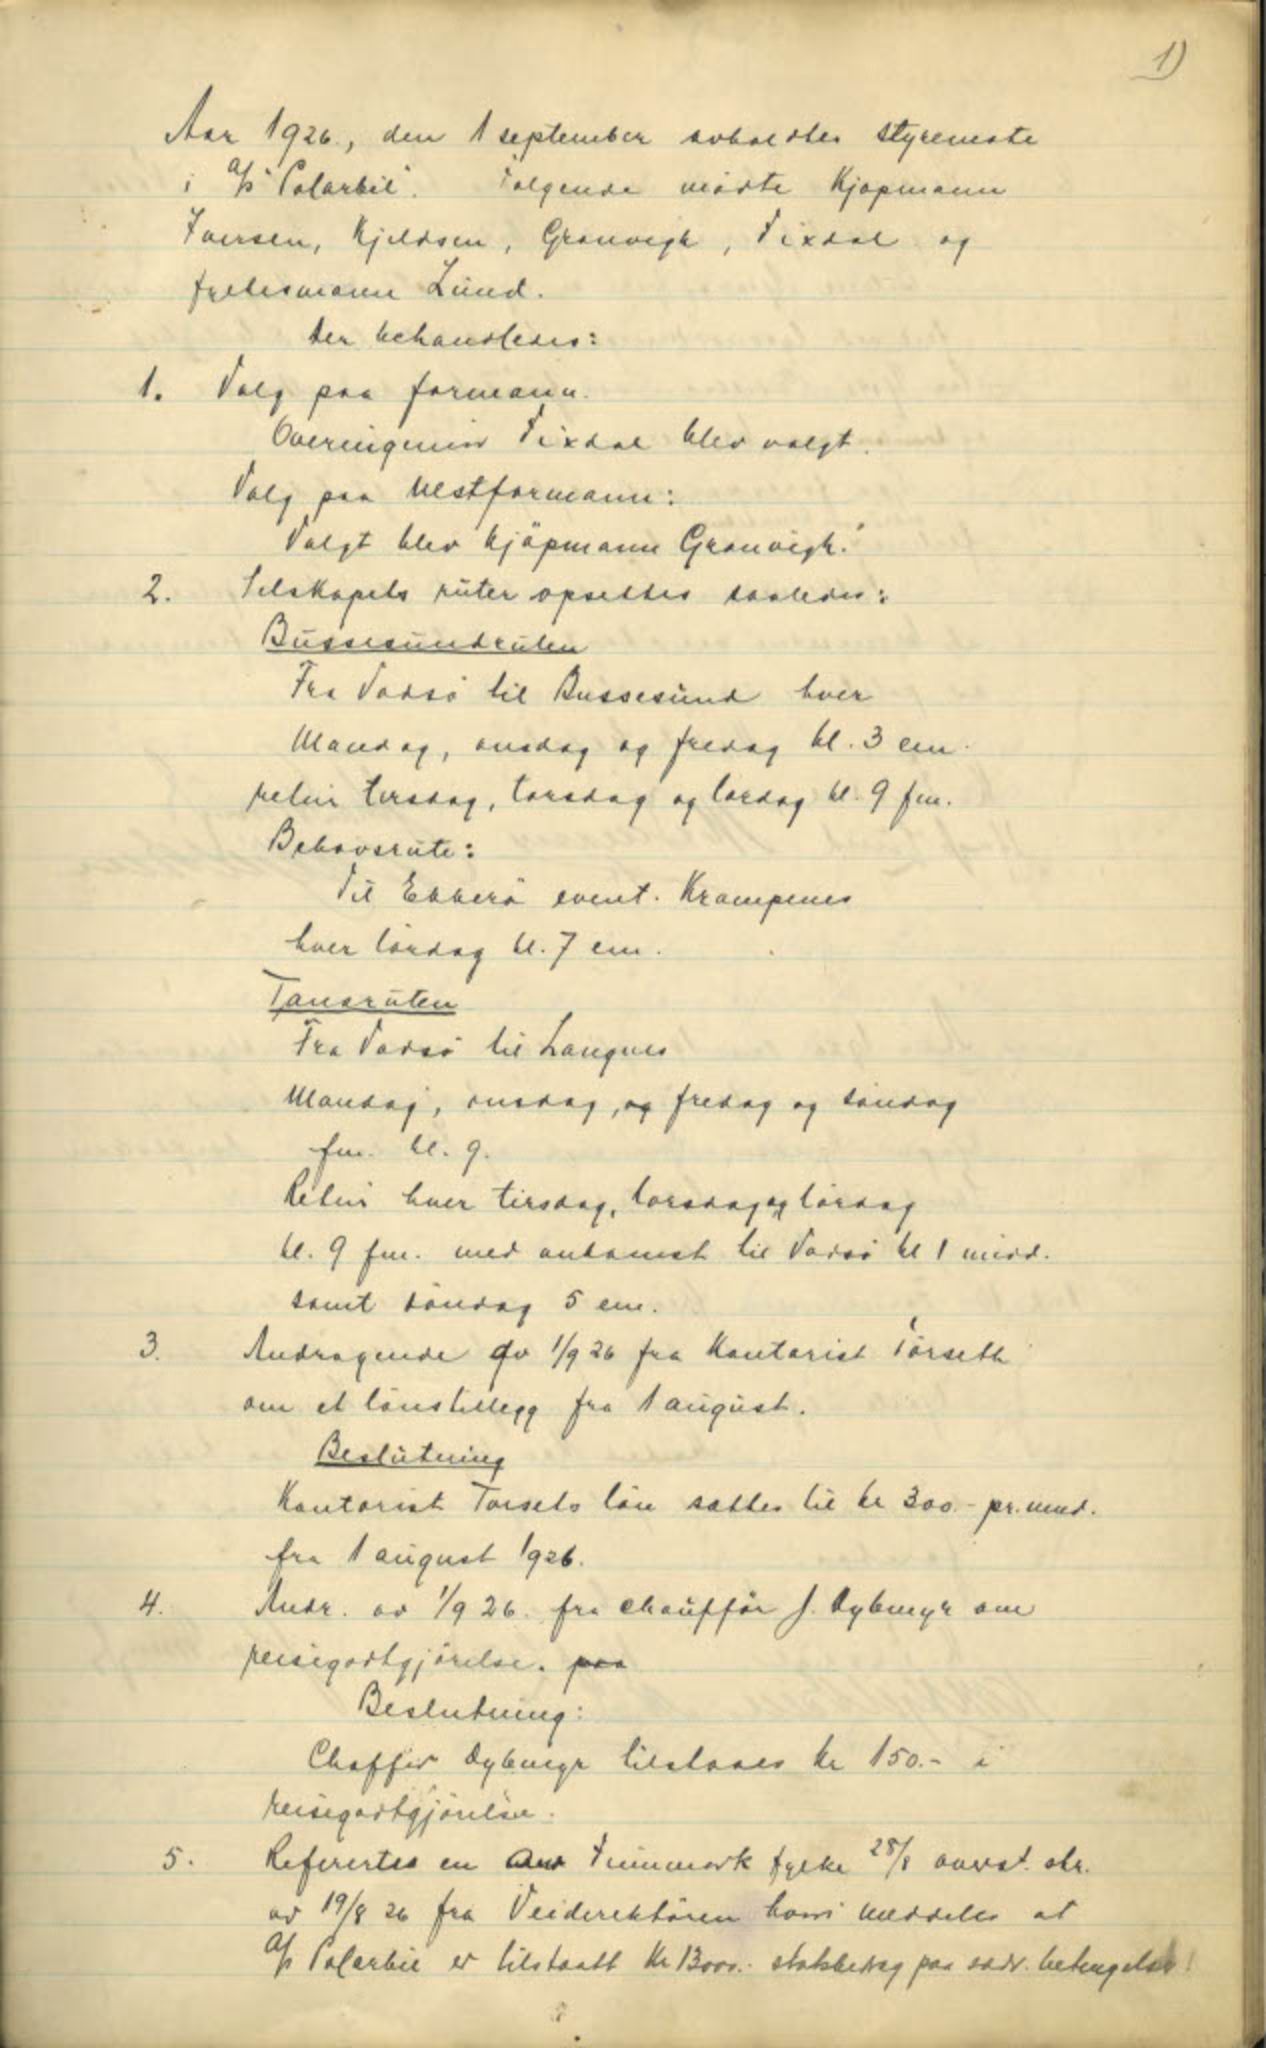 1)
Aar 1926, den 1 september avholdtes styremøte
i A/S "Polarbil". Følgende møtte Kjøpmann
Iversen, Kjeldsen, Grønvigh, Tixdal og
fylkesmann Lund.
Der behandledes:
1. Valg paa formann.
Overingeniør Tixdal blev valgt.
Valg paa nestformann:
Valgt blev kjøpmann Grønvigh.
2. Selskapets ruter opsettes saaledes:
Bussesundruten
Fra Vadsö til Bussesund hver
Mandag, onsdag og fredag kl. 3 em.
retur tirsdag, torsdag og lördag kl. 9 fm.
Behovsrute:
Til Ekkerö event. Krampenes
hver lördag kl. 7 em.
Tanaruten
Fra Vadsö til Langnes
Mandag, onsdag, og fredag og söndag
fm. kl. 9.
Retur hver tirsdag, torsdag og lördag
kl. 9 fm. med ankomst til Vadsö kl 1 midd.
samt söndag 5 em.
3. Andragende av 1/9 26 fra Kontorist Törseth
om et lönstillegg fra 1 august.
Beslutning
Kontorist Torsets lön sættes til kr 300.- pr. mnd.
fra 1 august 1926.
4. Andr. av 1/9 26. fra chaufför J. Dybmyr om
reisegodtgjörelse. paa
Beslutning:
Chafför Dybmyr tilstaaes kr 150.- i
reisegodtgjörelse.
5. Refertes en Finnmark fylke 28/8 overs. skr.
av 19/8 26 fra Veidirektören hvori meddeles at
A/S Polarbil er tilstaatt Kr 13000.- statsbidrag paa sedv. betingelser!